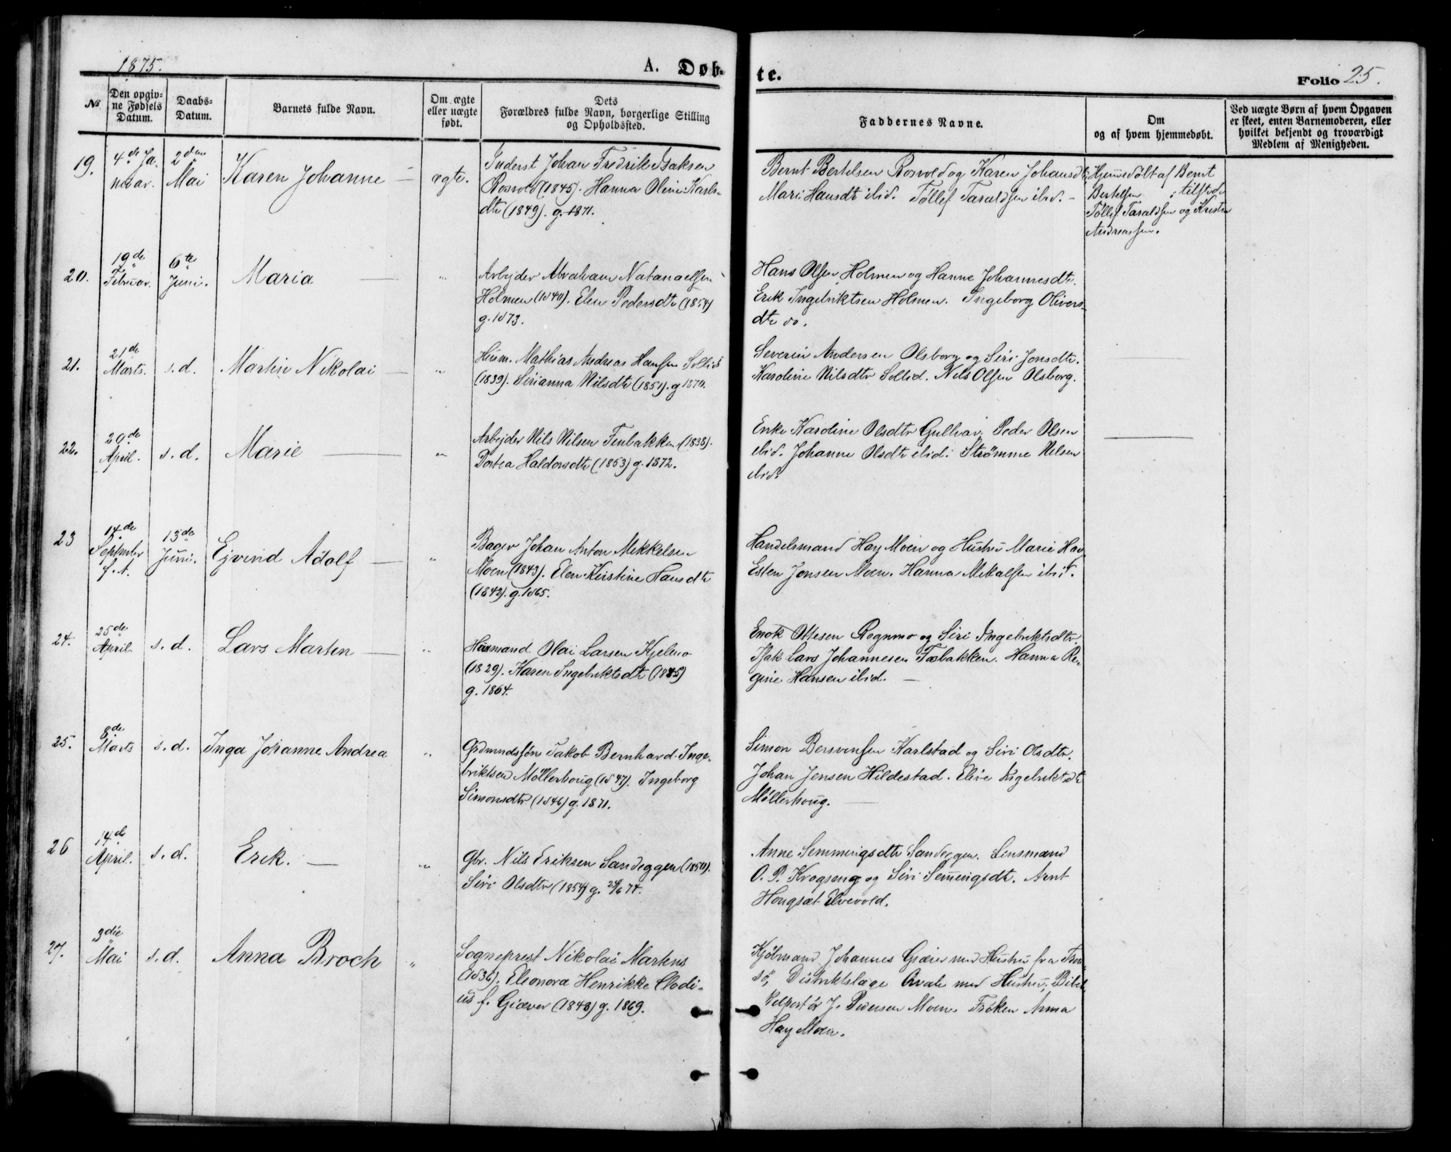 1875.
A. Døb-
te.
Folio 25.
No
Den opgiv-
ne Fødsels
Datum.
Daabs-
Datum.
Barnets fulde Navn.
Om ægte
eller uægte
født.
Dets
Forældres fulde Navn, borgerlige Stilling
og Opholdssted.
Faddernes Navne.
Om
og af hvem hjemmedøbt.
Ved uægte Børn af hvem Opgaven
er skeet, enten Barnemoderen, eller
hvilket bekjendt og troværdigt
Medlem af Menigheden.
19.
4de Ja-
nuar.
2den
Mai
Karen Johanne
ægte.
Inderst Johan Fredrik Isaksen
Rosvold (1845). Hanna Oline Karls-
dtr (1849). g. 1871.
Bernt Bertelsen Rosvold og Karen Johansdtr
Mari Hansdtr ibid. Tollef Taraldsen ibid. -
Hjemmedøbt af Bernt
Bertelsen
Tollef Taraldsen og Kristen
Andreassen.
20.
19de
Februar.
6te
Juni.
Maria
"
Arbejder Abraham Natanaelsen
Holmen (1840). Elen Pedersdtr (1854)
g. 1873.
Hans Olsen Holmen og Hanne Johannesdtr.
Erik Ingebriktsen Holmen. Ingeborg Olivers-
dtr do.
21.
21de
Marts.
s. d.
Martin Nikolai
"
Huusm. Mathias Andreas Hansen Sollid
(1839). Sirianna Nilsdtr (1851). g. 1870.
Severin Andersen Olsborg og Siri Jonsdtr.
Karoline Nilsdtr Sollid. Nils Olsen Olsborg.
22.
29de
April.
s. d.
Marie
"
Arbejder Nils Nilsen Finbakken (1838).
Dortea Haldorsdtr (1853) g. 1872.
Enke Karoline Olsdtr Gulhav, Peder Olsen
ibid. Johanne Olsdtr ibid. Strømme Nilsen
ibid.
23
14de
September
f. A.
13de
Juni.
Ejvind Adolf
"
Bager Johan Anton Mikkelsen
Moen (1843). Elen Kirstine Hansdtr
(1842). g. 1865.
Handelsmand Hay Moen og Hustru Marie Hay
Esten Jonsen Moen. Hanna Mikalsen ibid.
24.
25de
April.
s. d.
Lars Marten
"
Husmand Olai Larsen Kjelmo
(1829). Karen Ingebriktsdtr (1845)
g. 1864.
Enok Ottesen Rognmo og Siri Ingebriktsdtr.
Isak Lars Johannesen Fosbakken. Hanna Re-
gine Hansen ibid.
25.
8de
Marts
s. d.
Inga Johanne Andrea
"
Grdmandssøn Jakob Bernhard Inge-
briktsen Møllerhoug (1847). Ingeborg
Simonsdtr (1846) g. 1871.
Simon Bersvensen Karlstad og Siri Olsdtr.
Johan Jensen Hildestad. Eline Ingebriktsdtr
Møllerhoug.
26
14de
April.
s. d.
Erik.
"
Gbr. Nils Eriksen Sandeggen (1850).
Siri Olsdtr (1854) g. 74.
Anne Semmingsdtr Sandeggen. Lensmand
O. P. Krogseng og Siri Semmingsdtr. Arnt
Hongset Elvevold.
27.
3die
Mai
s. d.
Anna Broch
"
Sogneprest Nikolai Martens
(1836). Eleonora Henrikke Clodi-
us f. Giæver (1848) g. 1869.
Kjøbmand Johannes Giæver med Hustru fra Trom-
sø, Distriktslæge Qvale med Hustru,
J. Pedersen Moen. Frøken Anna
Hay Moen.